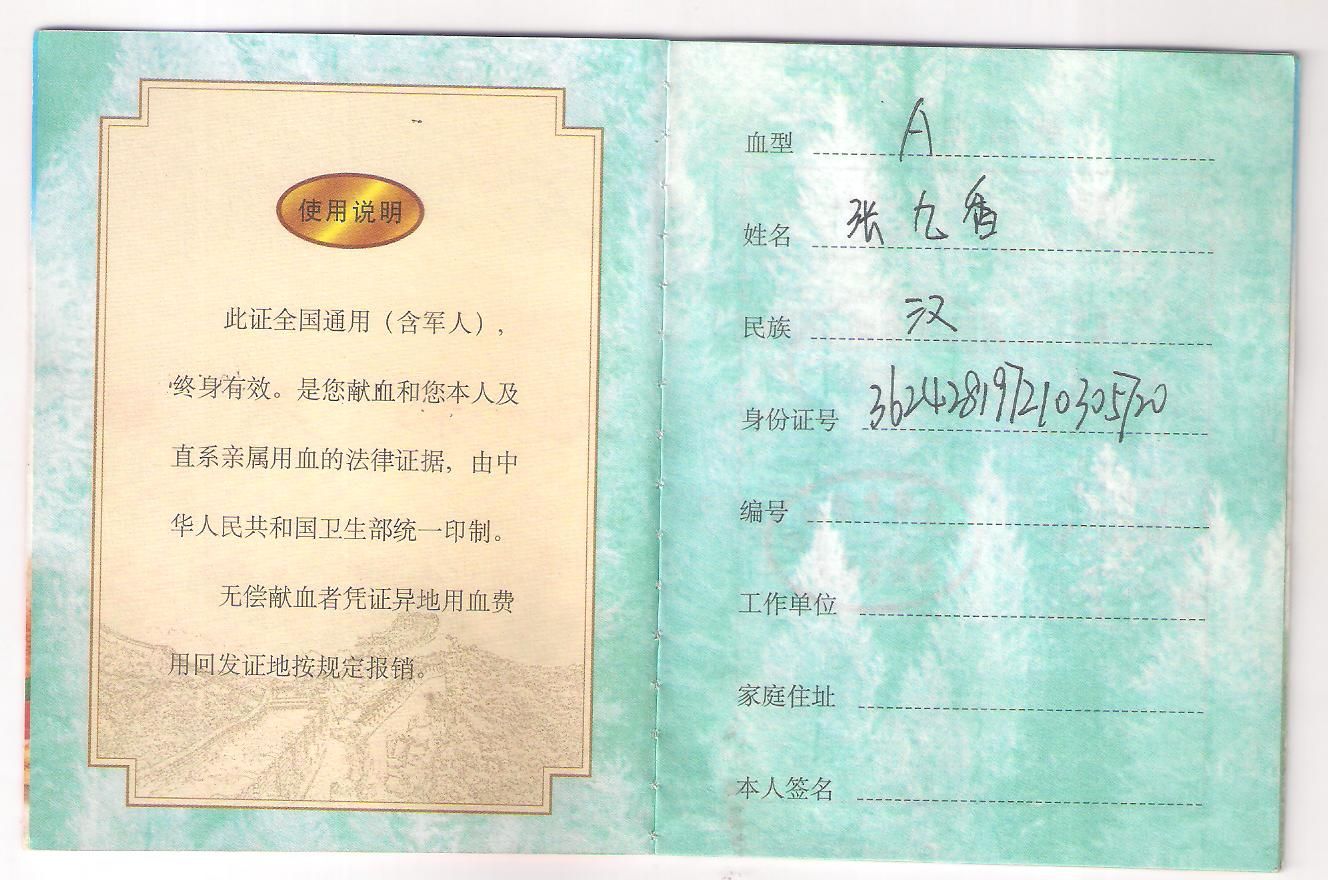 使用说明
此证全国通用（含军人），
终身有效。是您献血和您本人及
直系亲属用血的法律证据，由中
华人民共和国卫生部统一印制。
无偿献血者凭证异地用血费
用回发证地按规定报销。
血型 A
姓名 张九香
民族 汉
身份证号 362428197210305720
编号
工作单位
家庭住址
本人签名